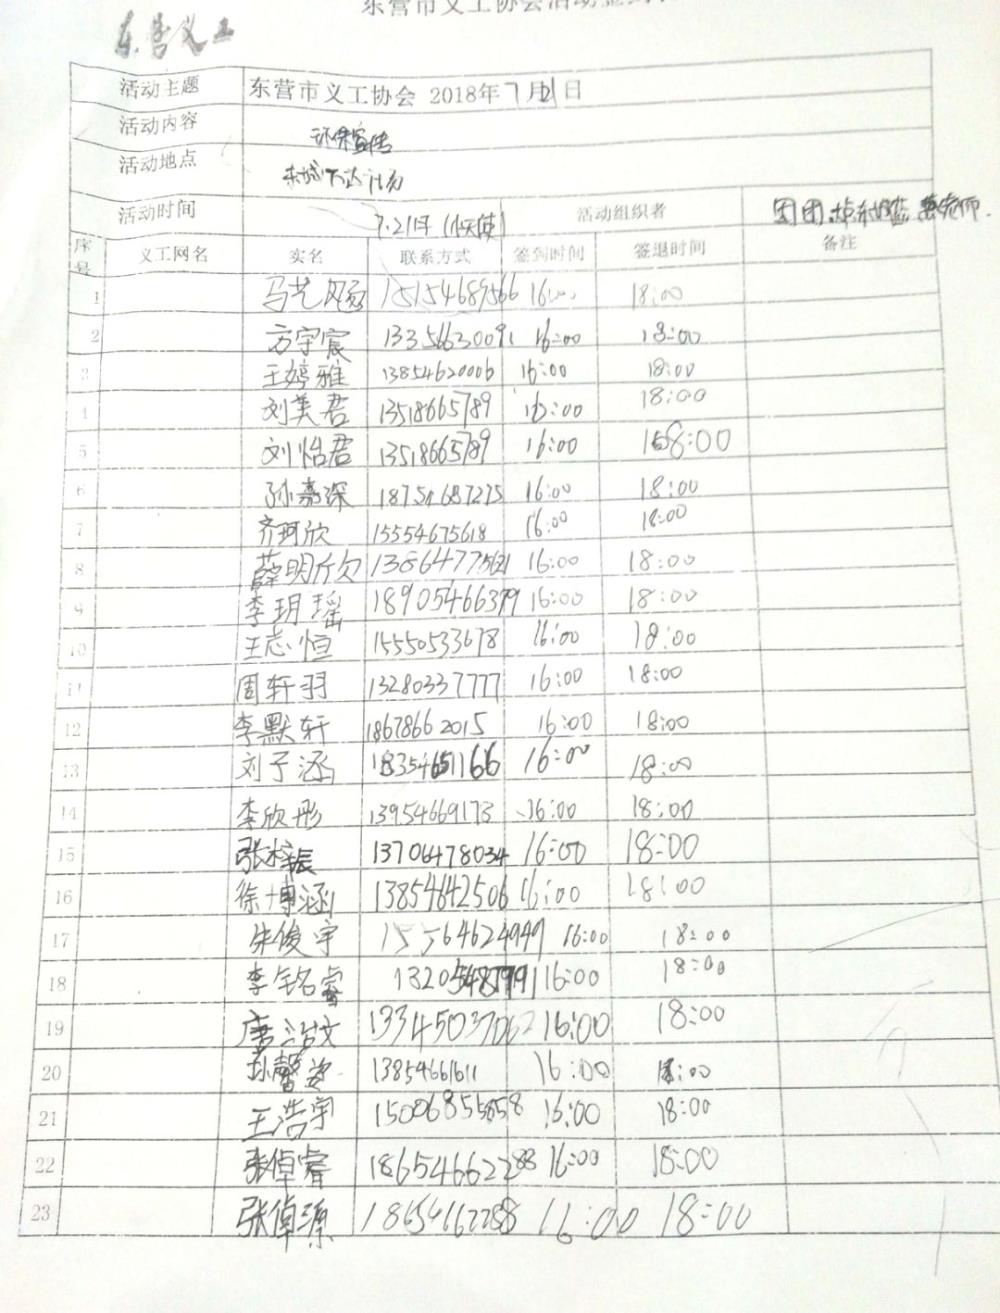 东营市义工协会活动签到
东营义工
活动主题 东营市义工协会 2018年7月21日
活动内容 环保宣传
活动地点 东城万达广场
活动时间 7.21日(小天使) 活动组织者 团团
序号 义工网名 实名 联系方式 签到时间 签退时间 备注
1 马艺 15154689566 16:00 18:00
2 方宇宸 16:00 18:00
3 王婷雅 13854620006 16:00 18:00
4 刘美君 13518665789 16:00 18:00
5 刘怡君 13518665789 16:00 18:00
6 孙嘉深 18754687275 16:00 18:00
7 齐珂欣 15554675618 16:00 18:00
8 薛明欣 16:00 18:00
9 李玥瑶 18905466379 16:00 18:00
10 王志恒 15550533678 16:00 18:00
11 周轩羽 13280337777 16:00 18:00
12 李默轩 18678662015 16:00 18:00
13 刘子涵 18354651166 16:00 18:00
14 李欣彤 13954669173 16:00 18:00
15 张 13706478034 16:00 18:00
16 徐博涵 13854642506 16:00 18:00
17 朱俊宇 15564624949 16:00 18:00
18 李铭睿 16:00 18:00
19 唐浩文 13345037062 16:00 18:00
20 孙馨 13854661611 16:00 18:00
21 王浩宇 15006855658 16:00 18:00
22 张倬睿 18654662288 16:00 18:00
23 张倬源 18654662288 16:00 18:00